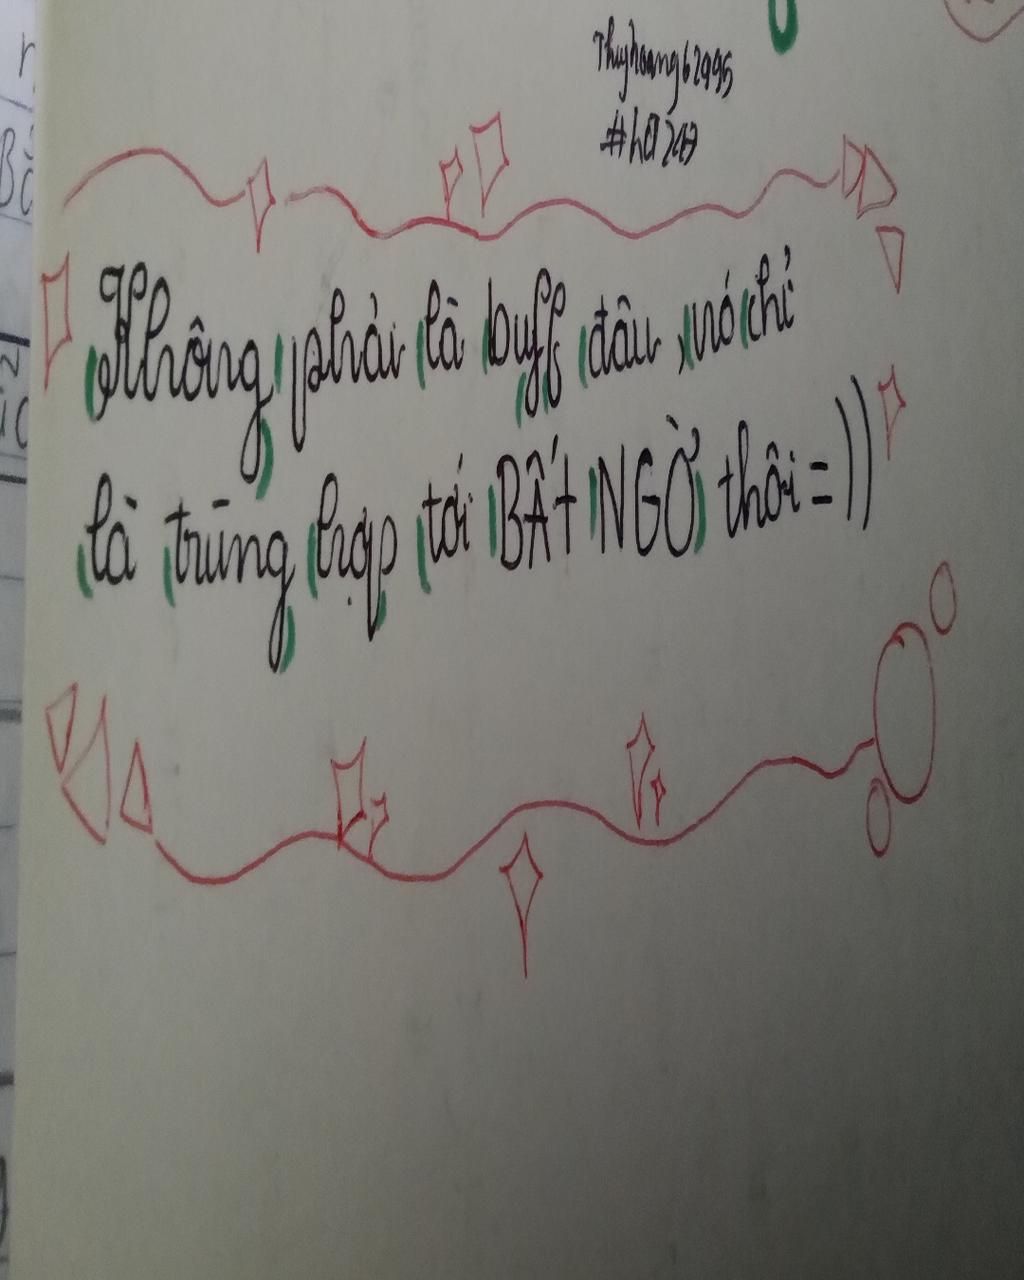 Thuyhoang62995
#hd247
Không phải là buff đâu, nó chỉ
là trùng hợp tới BẤT NGỜ thôi =))